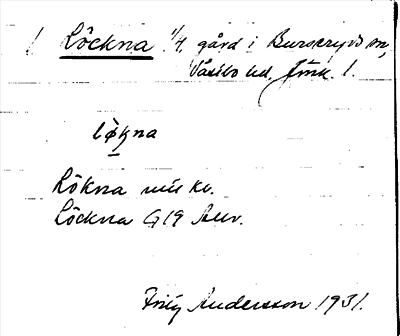 / Löckna 1/4 gård i Burseryds sn,
Västbo hd, Jönk. l.
lø̀kna
Kökna
Löckna G19 Anv.
Fritz Andersson 1931.